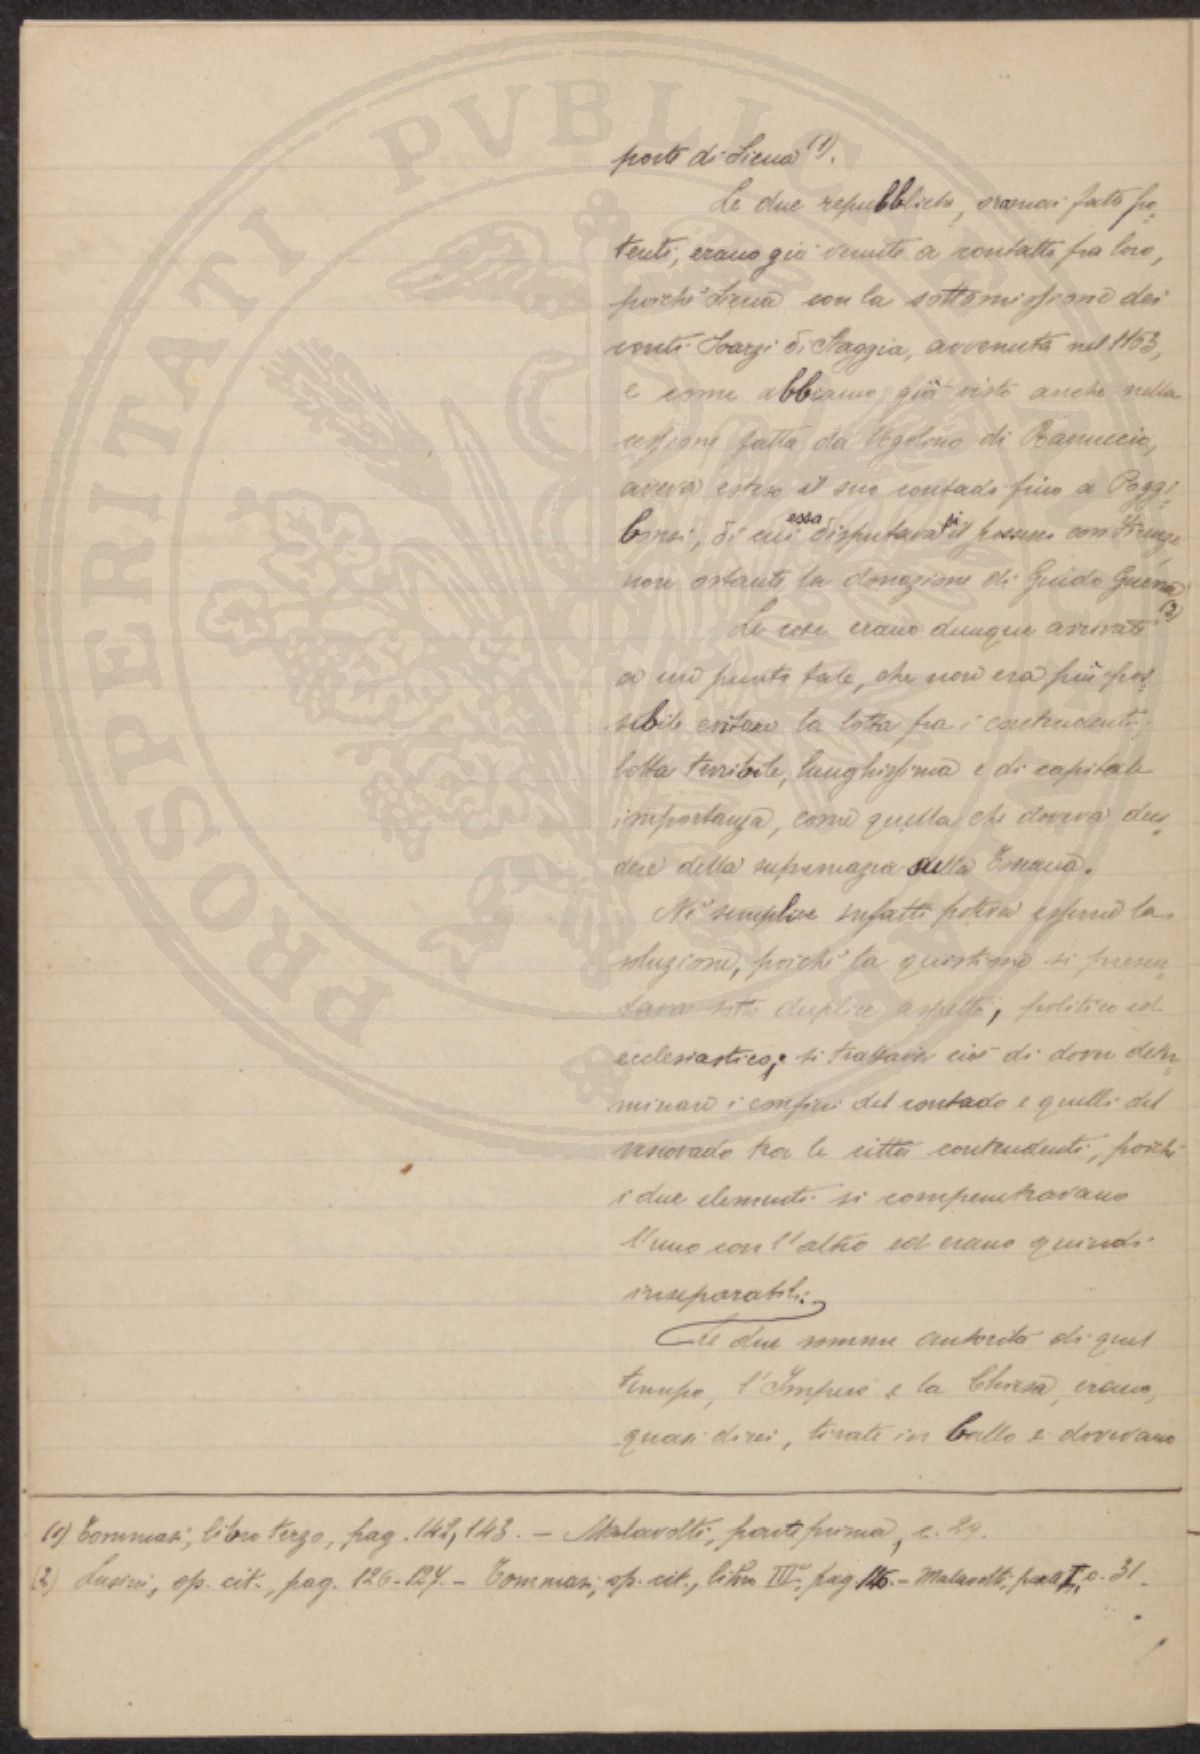 porte di Siena (1).
Le due repubbliche, oramai fatte po=
tenti, erano già venute a contatto fra loro,
poichè Siena con la sottomissione dei
conti Soarzi di Staggia, avvenuta nel 1153,
e come abbiamo già visto anche nella
cessione fatta da Ugolino di Ranuccio,
aveva esteso il suo contado fino a Poggi=
bonsi, di cui essa disputavasi il possesso con Firenze
non ostante la donazione di Guido Guerra (2)
Le cose erano dunque arrivate
a un punto tale, che non era più pos=
sibile evitare la lotta fra i contendenti;
lotta terribile, lunghissima e di capitale
importanza, come quella che doveva deci=
dere della supremazia della Toscana.
Nè semplice infatti poteva esserne la
soluzione, poichè la questione si presen=
tava sotto duplice aspetto, politico ed
ecclesiastico; si trattava cioè di dover deter=
minare i confini del contado e quelli del
vescovado tra le città contendenti, poichè
i due elementi si compenetravano
l'uno con l'altro ed erano quindi
inseparabili.
Le due somme autorità di quel
tempo, l'Impero e la Chiesa, erano,
quasi direi, tirate in ballo e dovevano
(1) Tommasi, libro terzo, pag. 142, 143. — Malavolti, parte prima, c. 29.
(2) Lusini, op. cit., pag. 126-127. — Tommasi, op. cit., libro III°, pag. 146. — Malavolti, parte I, c. 31.
PROSPERITATI PVBLICAE